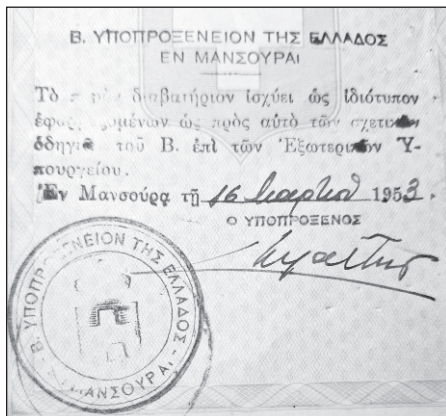 Β. ΥΠΟΠΡΟΞΕΝΕΙΟΝ ΤΗΣ ΕΛΛΑΔΟΣ
ΕΝ ΜΑΝΣΟΥΡΑΙ
Τὸ διαβατήριον ἰσχύει ὡς ἰδιότυπον
ὡς πρὸς αὐτὸ τῶν
τοῦ Β. ἐπὶ τῶν Ἐξωτερικῶν Ὑ-
πουργείου.
Ἐν Μανσούρᾳ τῇ 16 Μαρτίου 1953.
Ο ΥΠΟΠΡΟΞΕΝΟΣ
Β. ΥΠΟΠΡΟΞΕΝΕΙΟΝ ΤΗΣ ΕΛΛΑΔΟΣ
ΜΑΝΣΟΥΡΑΙ